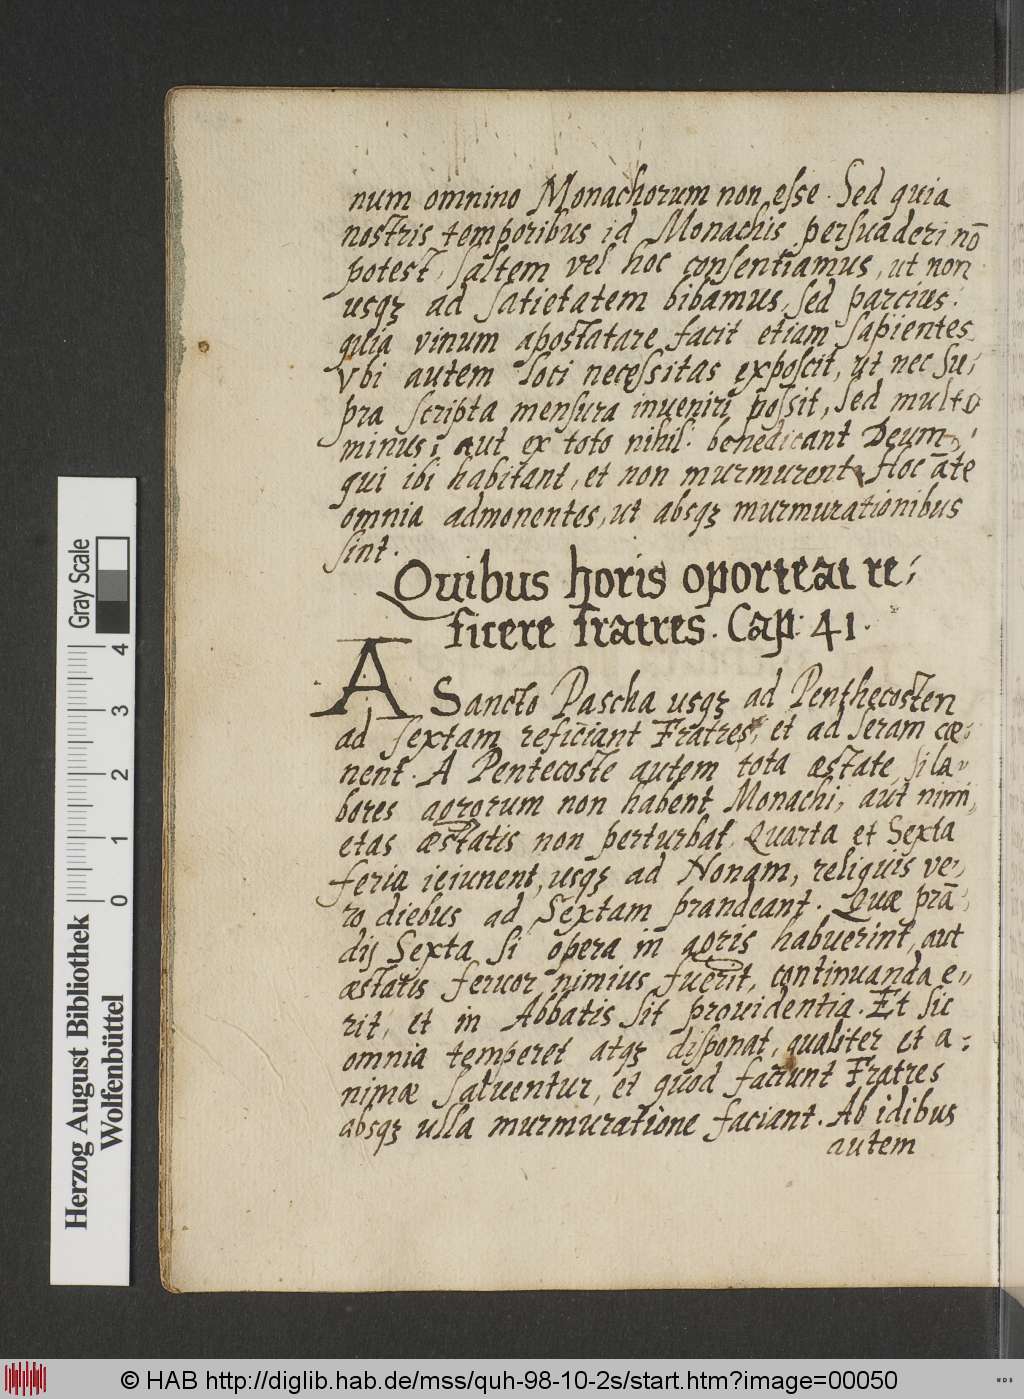 num omnino Monachorum non esse. Sed quia
nostris temporibus id Monachis persuaderi nō
potest, saltem vel hoc consentiamus, ut non
usqꝫ ad satietatem bibamus, sed parcius:
quia vinum apostatare facit etiam sapientes
Vbi autem loci necessitas exposcit, ut nec su:
pra scripta mensura inueniri possit, sed multo
minus; aut ex toto nihil: benedicant Deum
qui ibi habitant, et non murmurent. Hoc āte
omnia admonentes, ut absqꝫ murmurationibus
sint.
Quibus horis oporteat re:
ficere fratres. Cap: 41.
A Sancto Pascha usqꝫ ad Penthecosten
ad sextam reficiant Fratres, et ad seram cæ:
nent. A Pentecoste autem tota æstate, si la:
bores agrorum non habent Monachi, aut nimi,
etas æstatis non perturbat, Quarta et Sexta
feria ieiunent, usqꝫ ad Nonam, reliquis ve:
ro diebus ad Sextam prandeant. Quæ prā:
dij Sexta si opera in agris habuerint, aut
æstatis feruor nimius fuerit, continuanda e:
rit, et in Abbatis sit prouidentia. Et sic
omnia temperet atqꝫ disponat, qualiter et a:
nimæ saluentur, et quod faciunt Fratres
absqꝫ ulla murmuratione faciant. Ab idibus
autem
Herzog August Bibliothek
Wolfenbüttel
Gray Scale
0 1 2 3 4
© HAB http://diglib.hab.de/mss/quh-98-10-2s/start.htm?image=00050